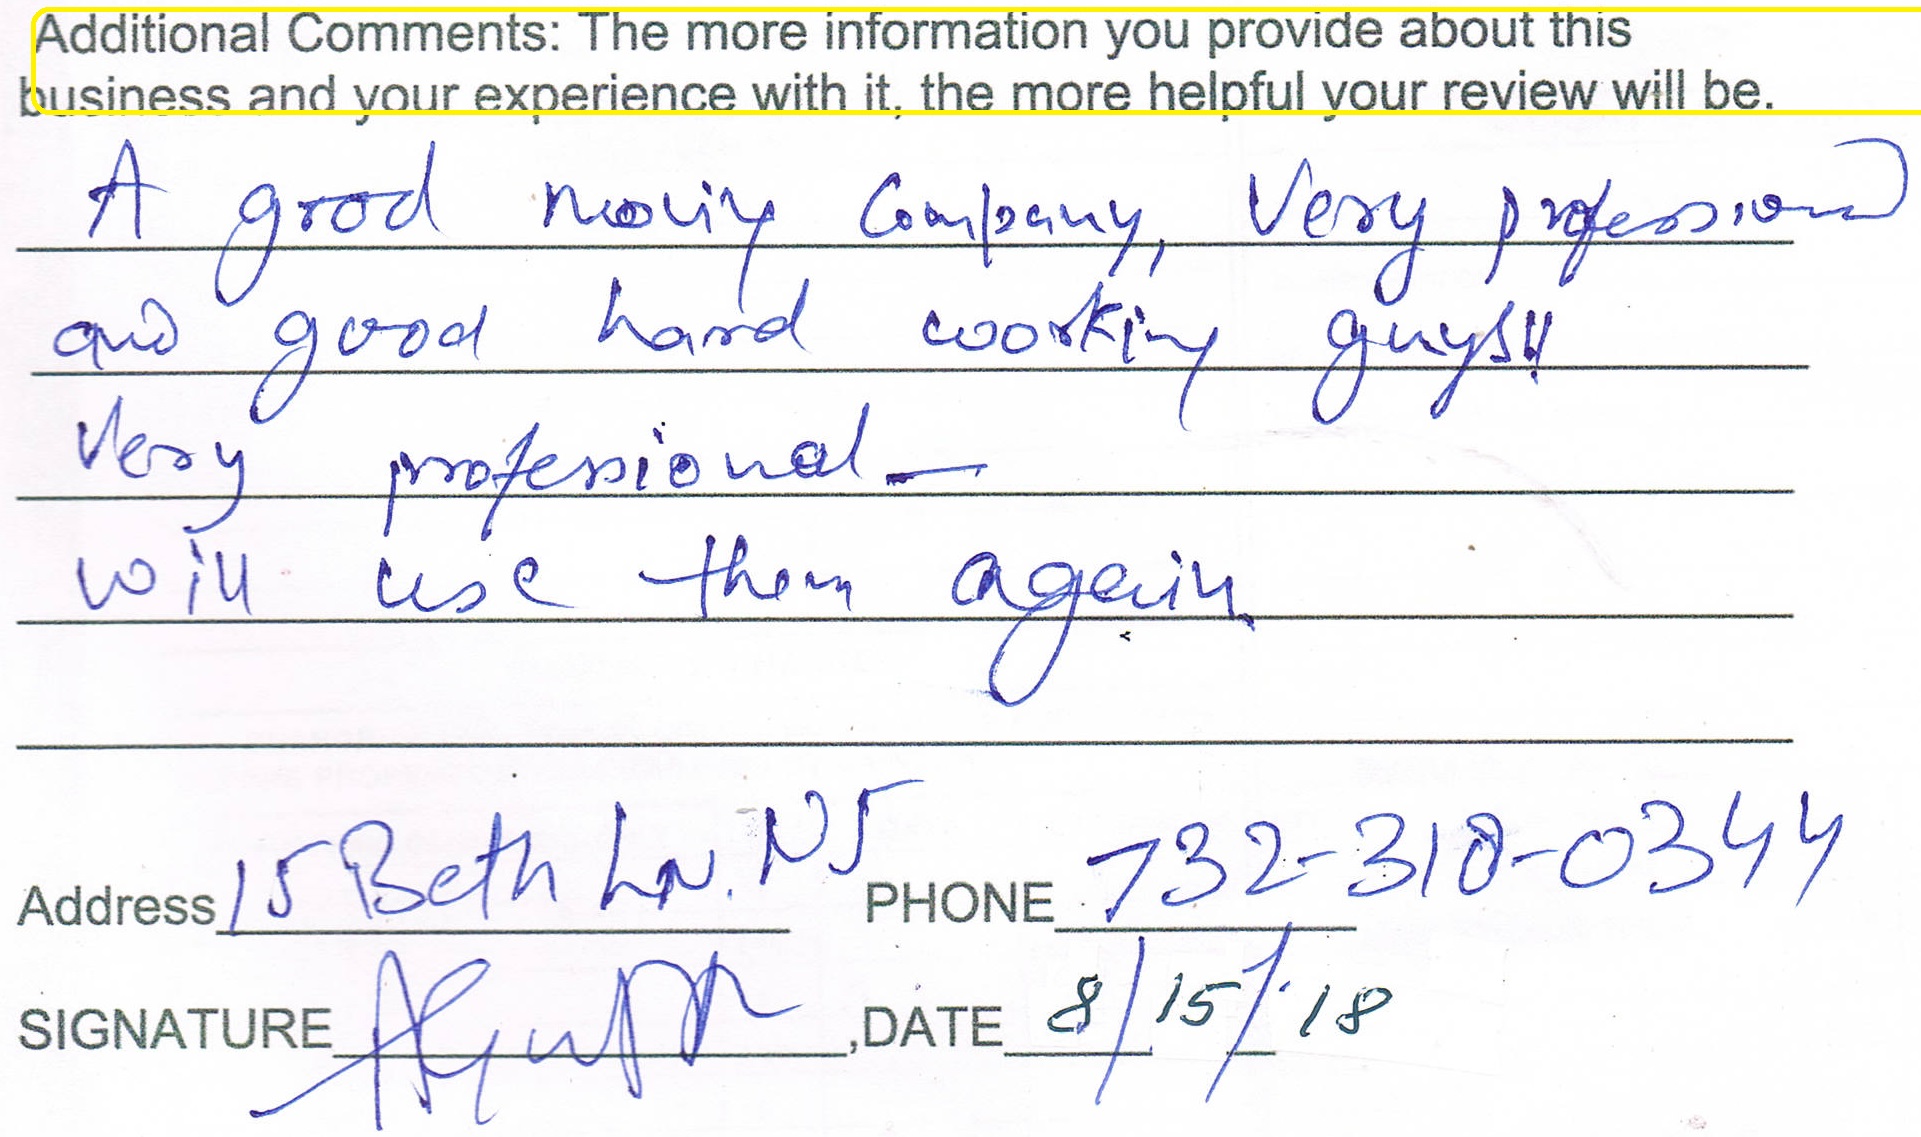 Additional Comments: The more information you provide about this
business and your experience with it, the more helpful your review will be.
A good moving Company, Very professional
and good hard working guys!!
Very professional -
will use them again
Address 15 Beth Ln. NJ PHONE 732-318-0344
SIGNATURE ,DATE 8/15/18